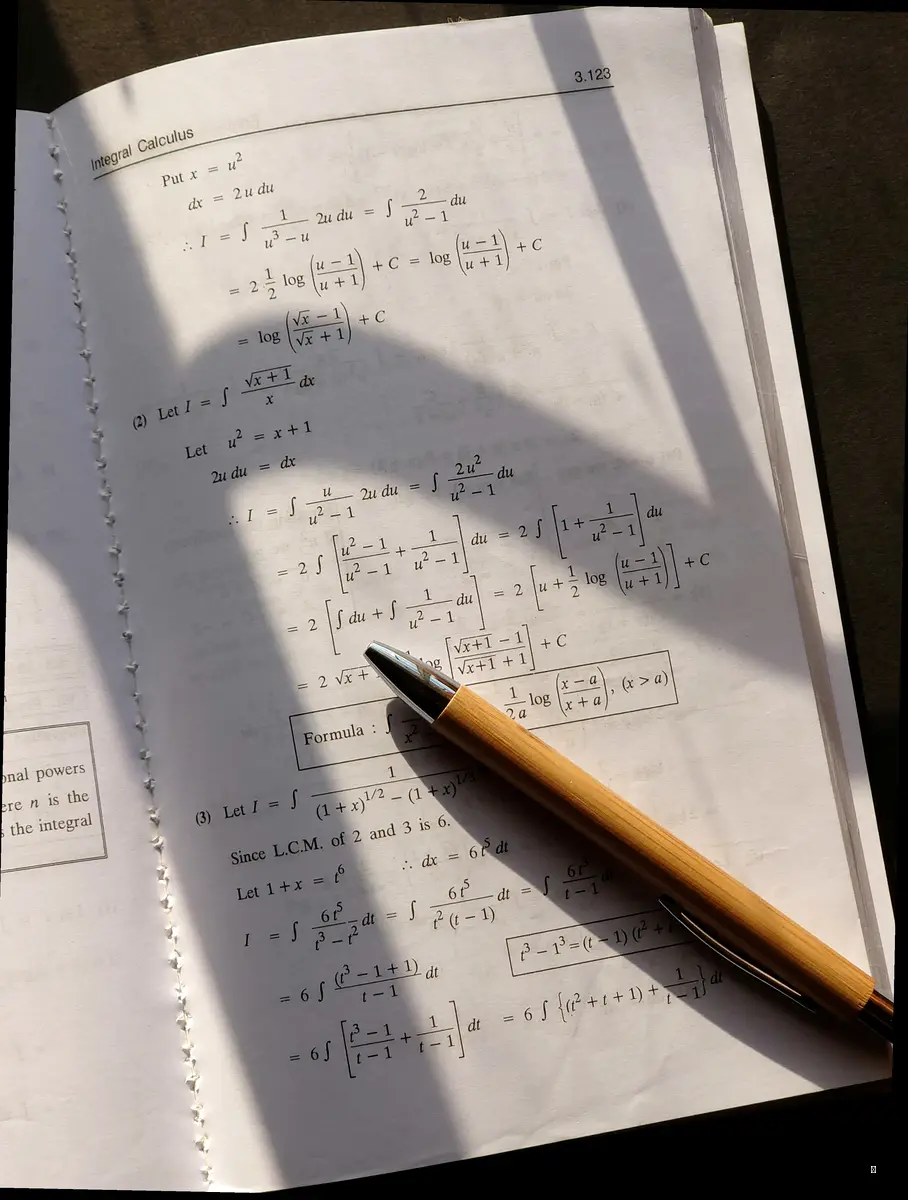 onal powers
ere n is the
s the integral
Integral Calculus 3.123
Put x = u²
dx = 2u du
∴ I = ∫ 1/(u³ − u) 2u du = ∫ 2/(u² − 1) du
= 2 1/2 log ((u − 1)/(u + 1)) + C = log ((u − 1)/(u + 1)) + C
= log ((√x − 1)/(√x + 1)) + C
(2) Let I = ∫ √(x + 1)/x dx
Let u² = x + 1
2u du = dx
∴ I = ∫ u/(u² − 1) 2u du = ∫ 2u²/(u² − 1) du
= 2 ∫ [(u² − 1)/(u² − 1) + 1/(u² − 1)] du = 2 ∫ [1 + 1/(u² − 1)] du
= 2 [∫ du + ∫ 1/(u² − 1) du] = 2 [u + 1/2 log ((u − 1)/(u + 1))] + C
= 2 √x + log [(√x+1 − 1)/(√x+1 + 1)] + C
Formula : ∫ x² 1/2a log ((x − a)/(x + a)), (x > a)
(3) Let I = ∫ 1/((1 + x)^1/2 − (1 + x)^1/3
Since L.C.M. of 2 and 3 is 6.
Let 1 + x = t⁶ ∴ dx = 6t⁵ dt
I = ∫ 6t⁵/(t³ − t²) dt = ∫ 6t⁵/(t² (t − 1)) dt = ∫ 6t³/(t − 1) dt
t³ − 1³ = (t − 1) (t² +
= 6 ∫ (t³ − 1 + 1)/(t − 1) dt
= 6∫ [(t³ − 1)/(t − 1) + 1/(t − 1)] dt = 6 ∫ {(t² + t + 1) + 1/(t − 1)} dt